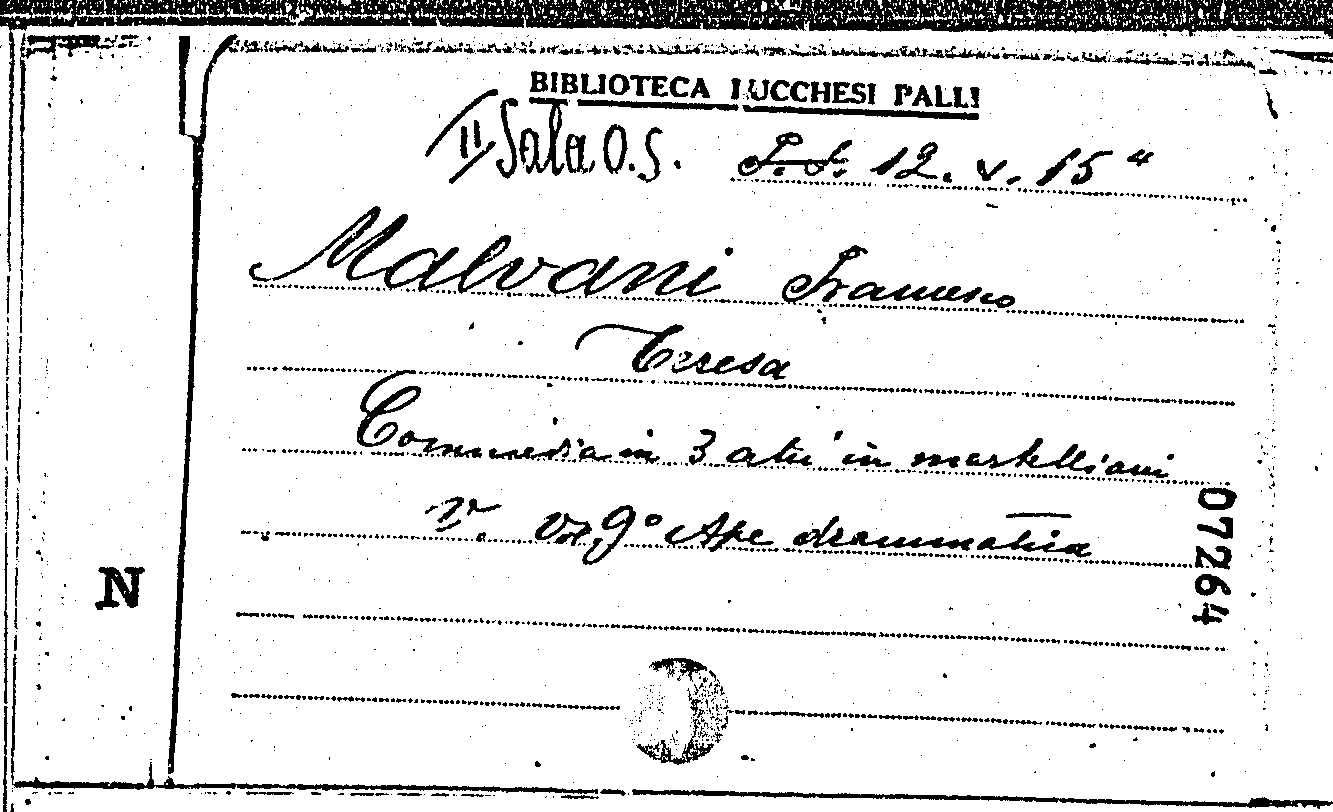 BIBLIOTECA LUCCHESI PALLI
II Sala O.S. 12. v. 15
Malvani Francesco
Teresa
Commedia in 3 atti in martelliani
v. vol. 9° Ape drammatica
07264
N